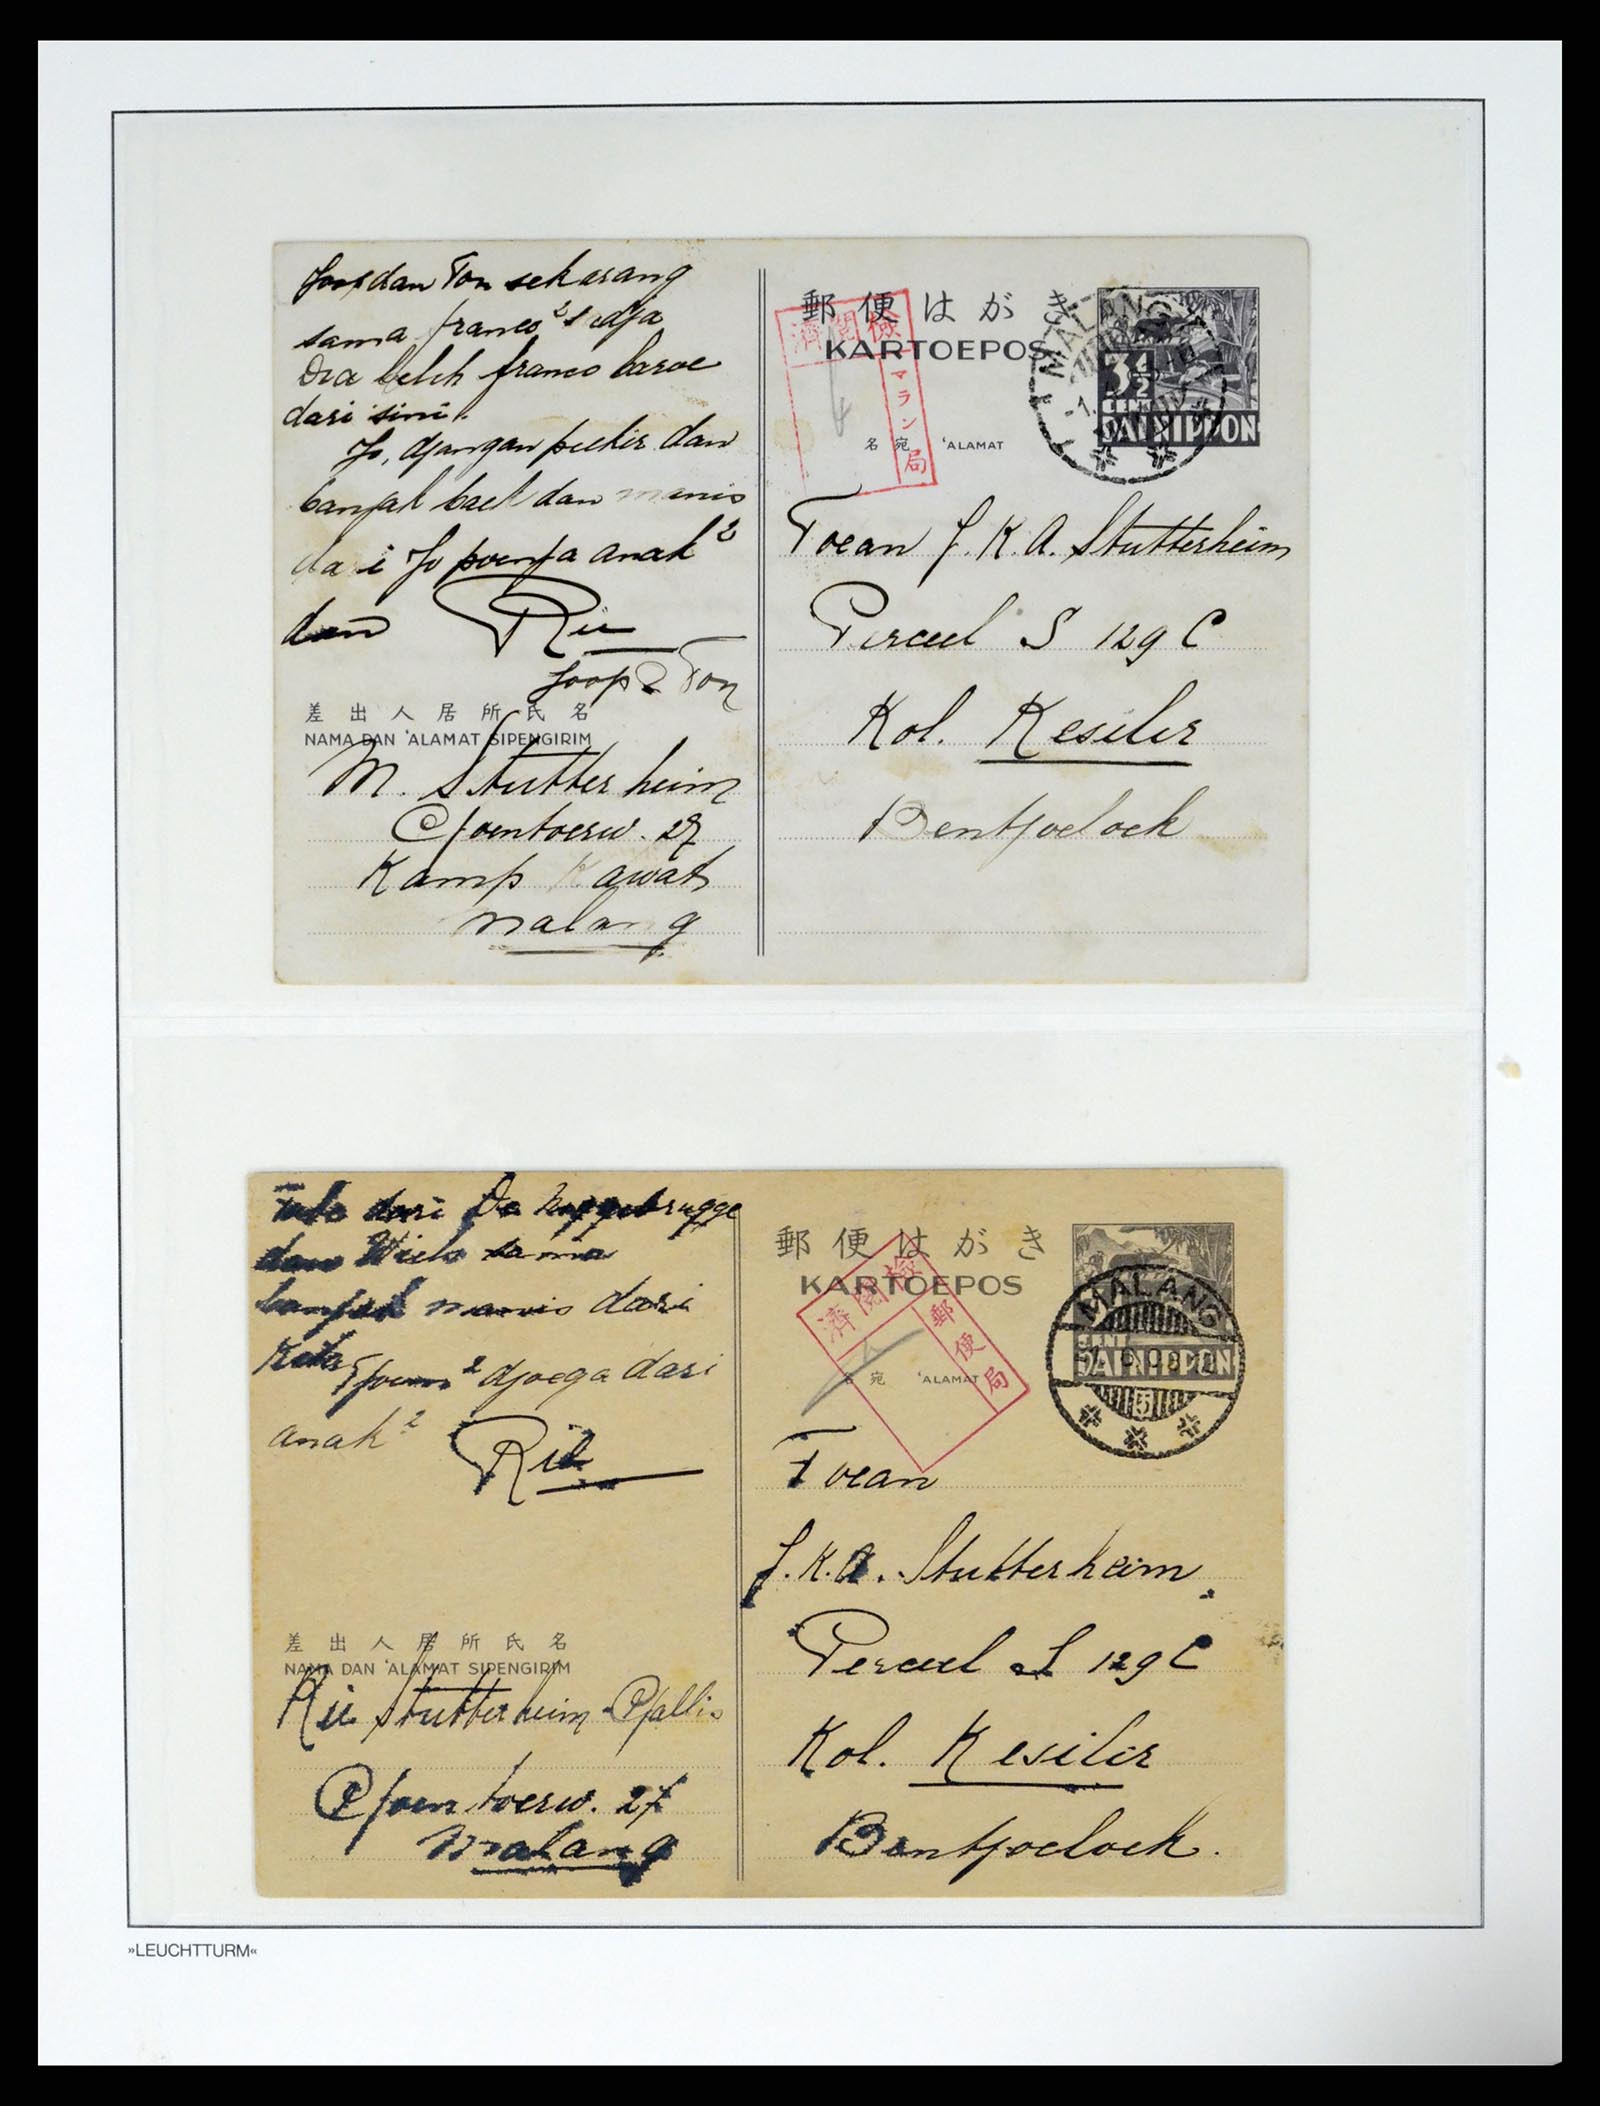 Joop dan Ton sekarang
sama franco² sadja
Dia beleh franco baroe
dari sini.
Jo, djangan pikir dan
banjak baek dan manis
dari Jo poenja anak²
dan Rie
Joop & Ton
差出人居所氏名
NAMA DAN 'ALAMAT SIPENGIRIM
M. Stutterheim
Goentoerw. 27
Kamp Kawat
Malang
郵便はがき
KARTOEPOS
検閲済
マラン局
名宛 'ALAMAT
MALANG
3½
CENT
DAI NIPPON
Toean J. K. A. Stutterheim
Perceel S 129 C
Kol. Kesilir
Bentjoeloek
dari De
dan Wiels sama
banjak manis dari
djoega dari
anak²
Rie
差出人居所氏名
NAMA DAN 'ALAMAT SIPENGIRIM
Rie Stutterheim
Goentoerw. 27
Malang
郵便はがき
KARTOEPOS
検閲済
郵便局
名宛 'ALAMAT
MALANG
CENT
DAI NIPPON
5
Toean
J. K. A. Stutterheim
Perceel S 129 C
Kol. Kesilir
Bentjoeloek.
»LEUCHTTURM«